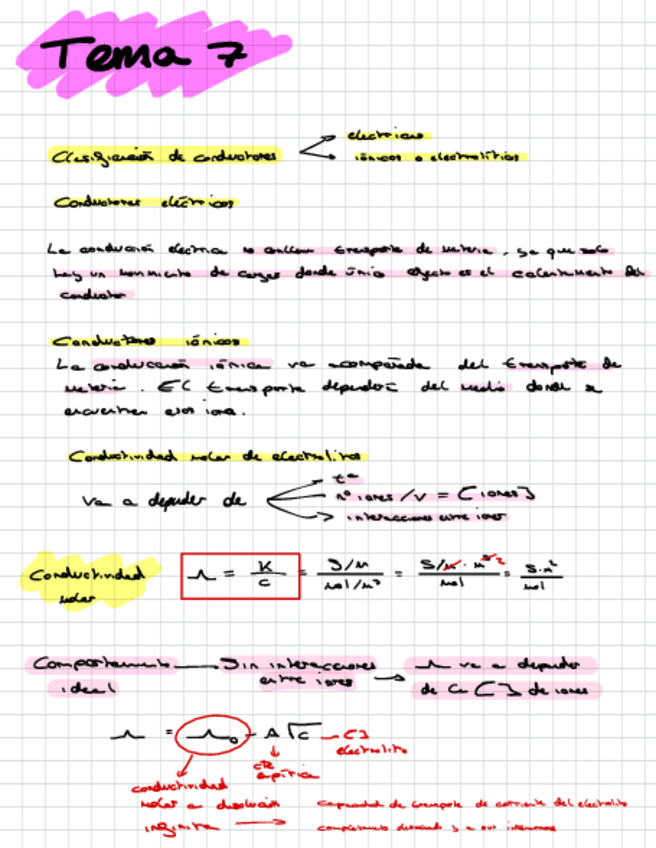 Tema 7
Clasificación de conductores
electricos
iónicos o electrolíticos
Conductores eléctricos
La conducción electrica no conlleva transporte de materia, ya que solo
hay un movimiento de cargas donde único efecto es el calentamiento del
conductor
Conductores iónicos
La conducción iónica va acompañada del transporte de
materia. El transporte dependerá del medio donde se
encuentren esos iones.
Conductividad molar de electrolitos
va a depender de
tª
nº iones / v = [iones]
interacciones entre iones
Conductividad
molar
Λ = K/c = S/m / mol/m³ = S/m · m³ ² / mol = S·m² / mol
Comportamiento
ideal
Sin interacciones
entre iones
Λ va a depender
de la [ ] de iones
Λ = Λ₀ - A √c
[ ]
electrolito
cte
empírica
conductividad
molar a disolución
infinita
capacidad de transporte de corriente del electrolito
completamente